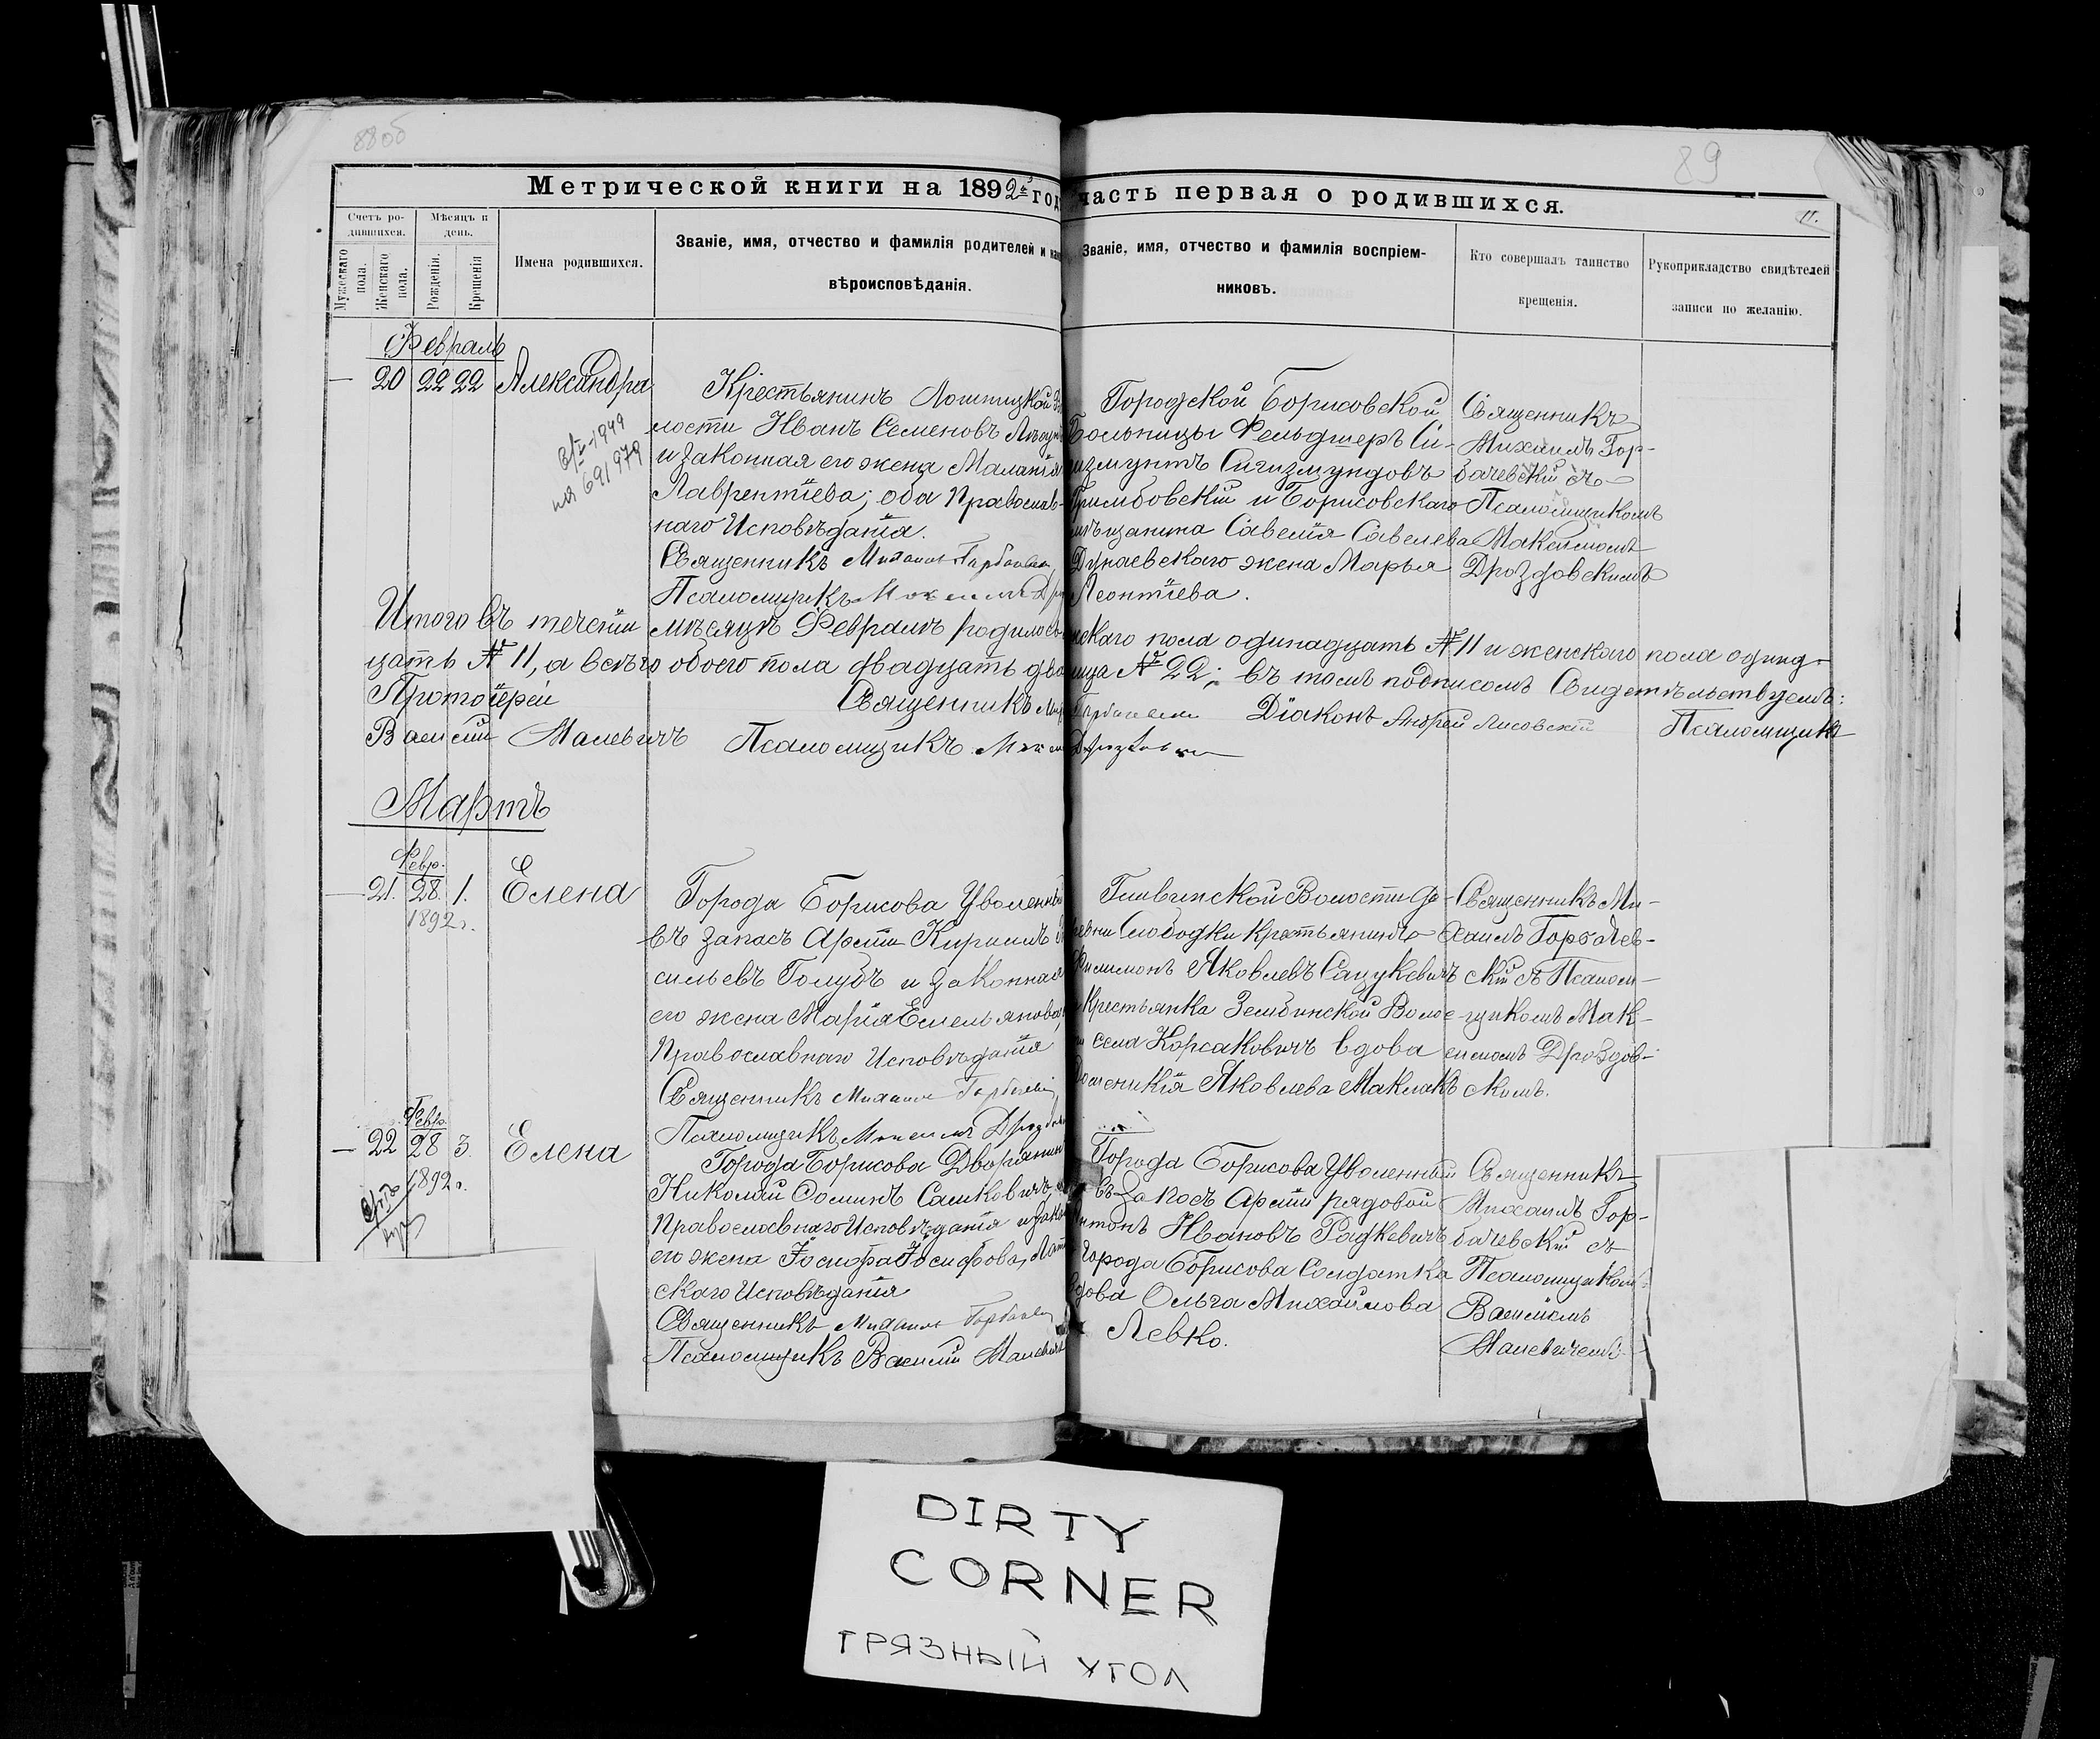 88об
89
Метрической книги на 1892й год
часть первая о родившихся.
11.
Счетъ ро-
дившихся.
Мѣсяцъ и
день.
Мужескаго
пола.
Женскаго
пола.
Рожденія.
Крещенія
Имена родившихся.
Званіе, имя, отчество и фамилія родителей и
вѣроисповѣданія.
Званіе, имя, отчество и фамилія воспріем-
никовъ.
Кто совершалъ таинство
крещенія.
Рукоприкладство свидѣтелей
записи по желанію.
Февраль
— 20 22 22 Александра
1949
691979
Крестьянинъ Лошницкой
лости Иванъ Семеновъ
и законная его жена Маланія
Лаврентіева; оба Православ-
наго Исповѣданія.
Священникъ Михаилъ Горбачев
Псаломщикъ Максимъ
Городской Борисовской
Больницы Фельдшеръ Си-
гизмунтъ Сигизмундовъ
и Борисовскаго
мѣщанина Савелія Савелева
Дунаевскаго жена Марья
Леонтіева.
Священникъ
Михаилъ Гор-
бачевскій съ
Псаломщикомъ
Максимомъ
Дроздовскимъ
Итого въ теченіи мѣсяцѣ Февралѣ родилось
скаго пола одинадцать № 11 и женскаго пола одинад-
цать № 11, а всего обоего пола двадцать два
лица № 22; въ томъ подписомъ Свидетельствуемъ:
Протоіерей
Священникъ
Діаконъ Андрей Лисовскій
Псаломщикъ
Василій Малевичъ
Псаломщикъ Максимъ Дроздовскій
Мартъ
Февр.
— 21. 28. 1. Елена
1892 г.
Города Борисова Уволенный
въ запасъ Арміи Кирилъ
сильевъ Голубъ и законная
его жена Марія Емельянова,
Православнаго Исповѣданія
Священникъ Михаилъ Горбачевскій
Псаломщикъ Максимъ Дроздов
Гливинской Волости де-
ревни Слободки Крестьянинъ
Филимонъ Яковлевъ Сацукевичъ
и Крестьянка Зембинской Волос-
ти села Корсаковичъ вдова
Яковлева Маклакъ
Священникъ Ми-
хаилъ Горбачев-
скій съ Псалом-
щикомъ Мак-
симомъ Дроздов-
скимъ.
Февр.
— 22 28 3. Елена
1892 г.
Города Борисова Дворянинъ
Николай Фоминъ Сашковичъ,
Православнаго Исповѣданія и зако
его жена Іосифа Іосифова, Латин
скаго Исповѣданія
Священникъ Михаилъ Горбачев
Псаломщикъ Василій Малевичъ
Города Борисова Уволенный
въ Запасъ Арміи рядовой
Антонъ Ивановъ Радкевичъ
Города Борисова Солдатка
вдова Ольга Михайлова
Левко.
Священникъ
Михаилъ Гор-
бачевскій съ
Псаломщикомъ
Василіемъ
Малевичемъ
DIRTY
CORNER
ГРЯЗНЫЙ УГОЛ